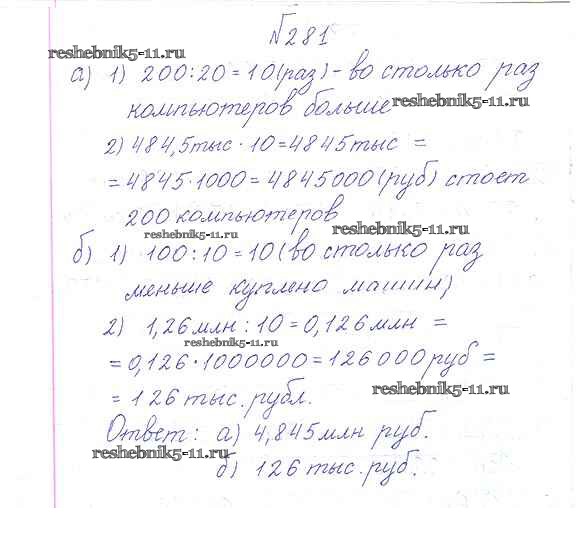 №281
reshebnik5-11.ru
а) 1) 200:20=10(раз)-во столько раз
компьютеров больше reshebnik5-11.ru
2) 484,5тыс·10=4845тыс =
=4845·1000=4845000(руб) стоят
200 компьютеров
reshebnik5-11.ru reshebnik5-11.ru
б) 1) 100:10=10(во столько раз
меньше куплено машин)
2) 1,26млн:10=0,126млн =
reshebnik5-11.ru
=0,126·1000000=126000руб =
=126тыс.рубл. reshebnik5-11.ru
Ответ: а) 4,845млн руб.
reshebnik5-11.ru
б) 126тыс.руб.